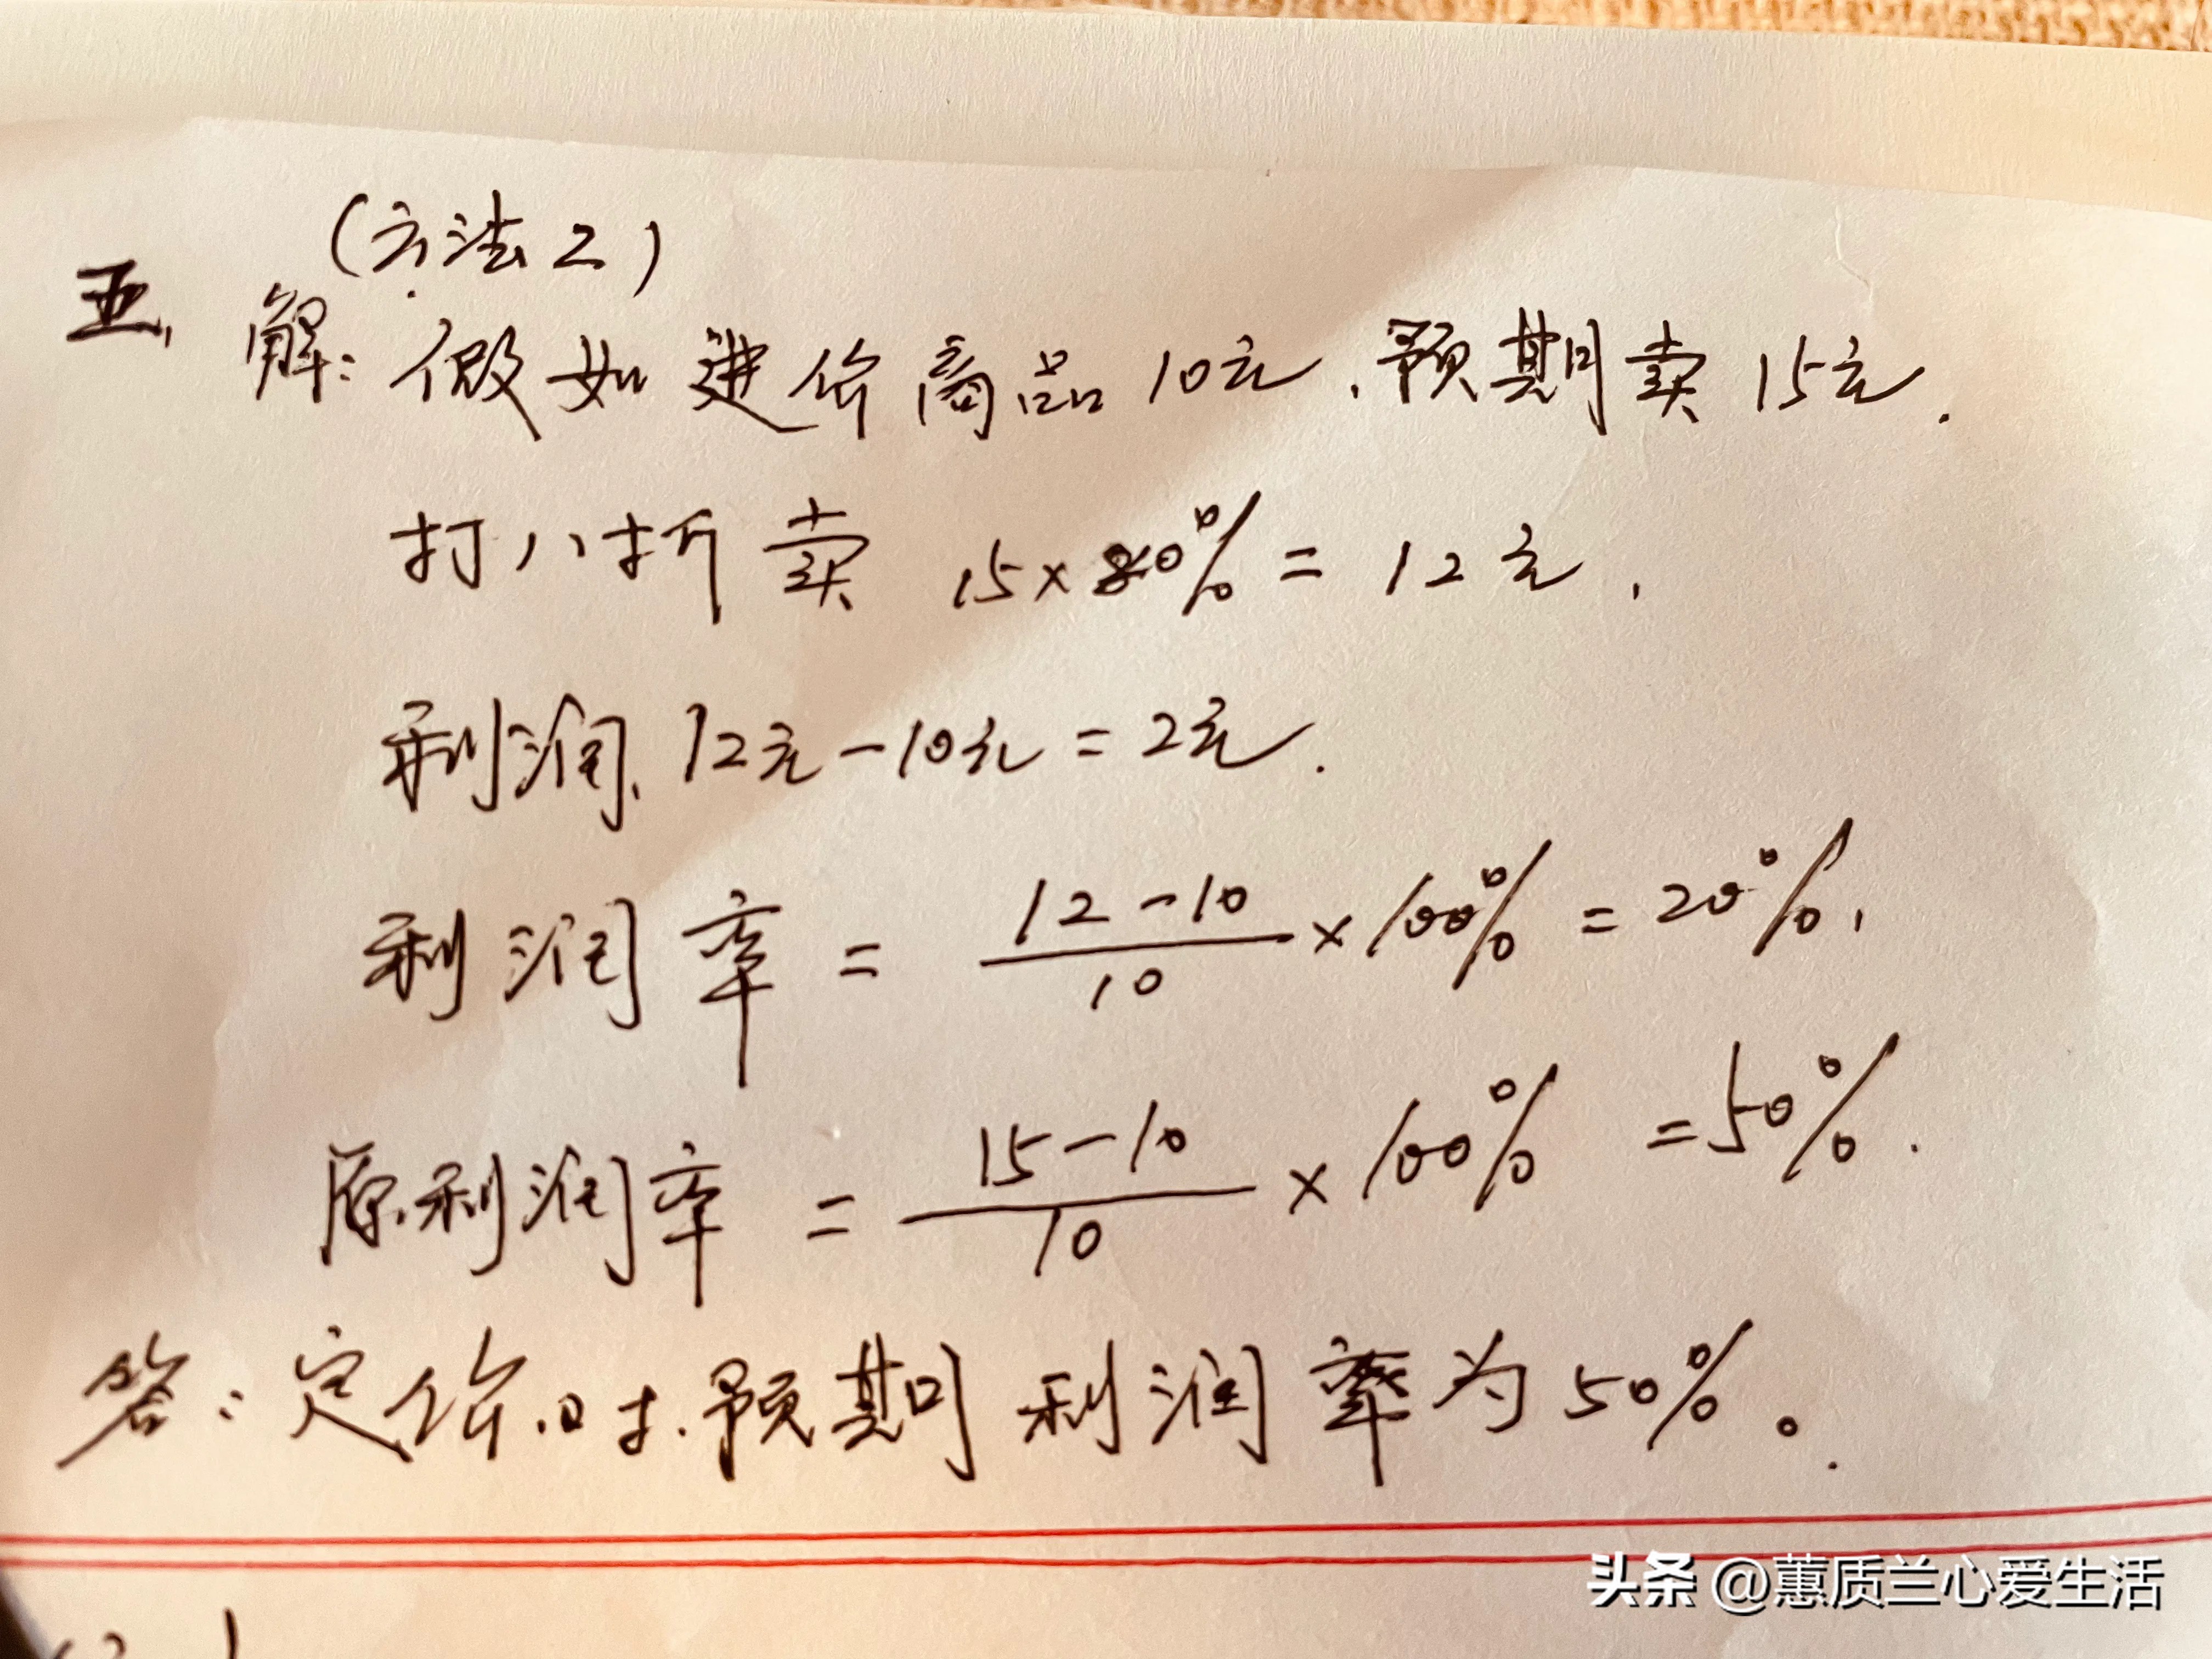 (方法2)
五、解：假如进价商品10元，预期卖15元．
打八折卖 15×80%=12元．
利润，12元-10元=2元．
利润率=12-10/10×100%=20%．
原利润率=15-10/10×100%=50%．
答：定价时．预期利润率为50%。
头条 @蕙质兰心爱生活